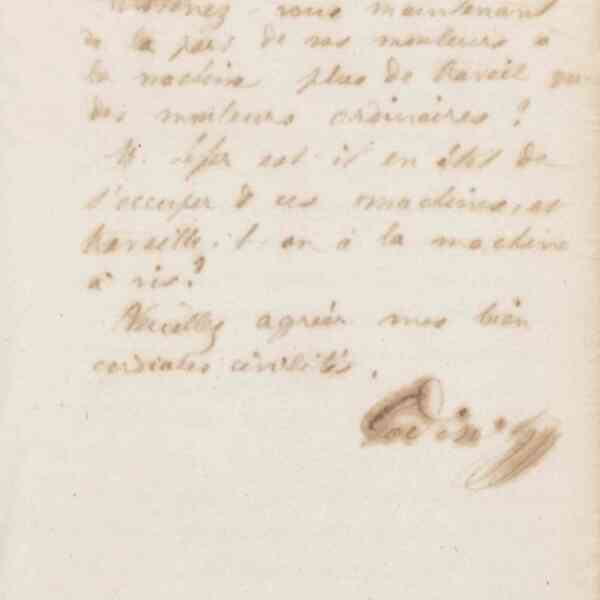 vous maintenant
de la part de vos mouleurs à
la machine plus de travail que
des mouleurs ordinaires ?
M. est-il en état de
s'occuper de ces machines, et
travaille-t-on à la machine
à vis ?
Veuillez agréer mes bien
cordiales civilités.
Godin